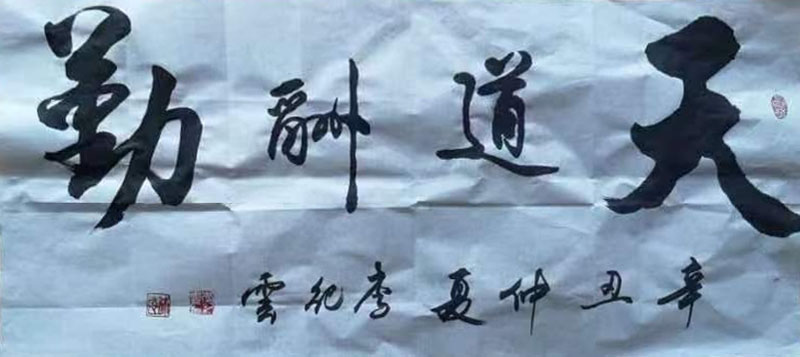 天道酬勤
辛丑仲夏李纪雲